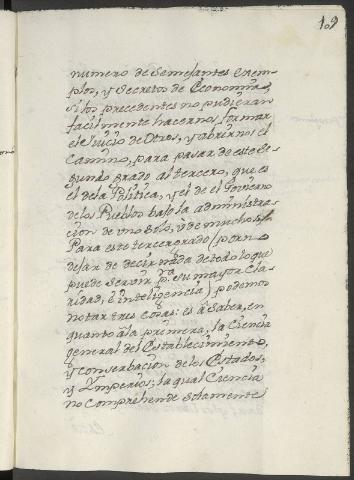 109
numero de Semejantes exem-
plos, y Secretos de Economia,
si los precedentes no pudieran
facilmente hacernos formar
el Juicio de Otros, y abrirnos el
Camino, para pasar de este Se-
gundo grado al tercero, que es
el de la Politica, y el de el Govierno
de los Pueblos bajo la administra-
cion de uno Solo, ù de muchos.
Para este tercer grado (por no
dejar de decir nada de todo lo que
puede Servir p.ra su mayor Cla-
ridad, è inteligencia) podemos
notar tres cosas: es à Saber, en
quanto à la primera, la Ciencia
general del Establecimiento,
y conserbacion de los Estados,
y Ymperios; la qual Ciencia
no comprehende solamente